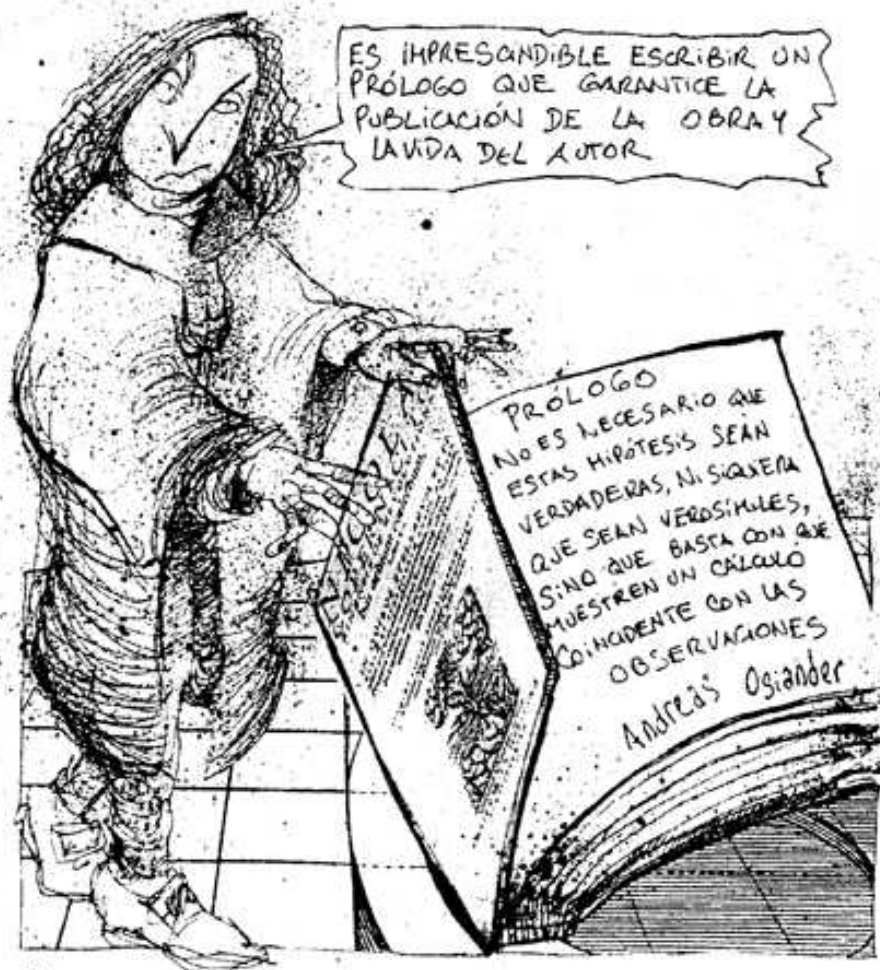 ES IMPRESCINDIBLE ESCRIBIR UN
PRÓLOGO QUE GARANTICE LA
PUBLICACIÓN DE LA OBRA Y
LA VIDA DEL AUTOR
PRÓLOGO
NO ES NECESARIO QUE
ESTAS HIPÓTESIS SEAN
VERDADERAS, NI SIQUIERA
QUE SEAN VEROSÍMILES,
SINO QUE BASTA CON QUE
MUESTREN UN CÁLCULO
COINCIDENTE CON LAS
OBSERVACIONES
Andreas Osiander